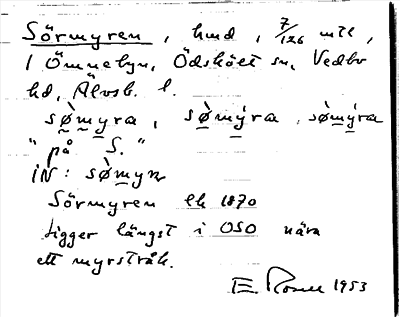 Sörmyren, hmd, 7/126 mtl,
i Ömnebyn, Ödskölt sn, Vedbo
hd, Älvsb. l.
sø̀myra, sø̀mýra, sø̀mýra
"på S."
IN: sø̀myr
Sörmyren ek 1870
Ligger längst i OSO nära
ett myrstråk.
E Rosell 1953